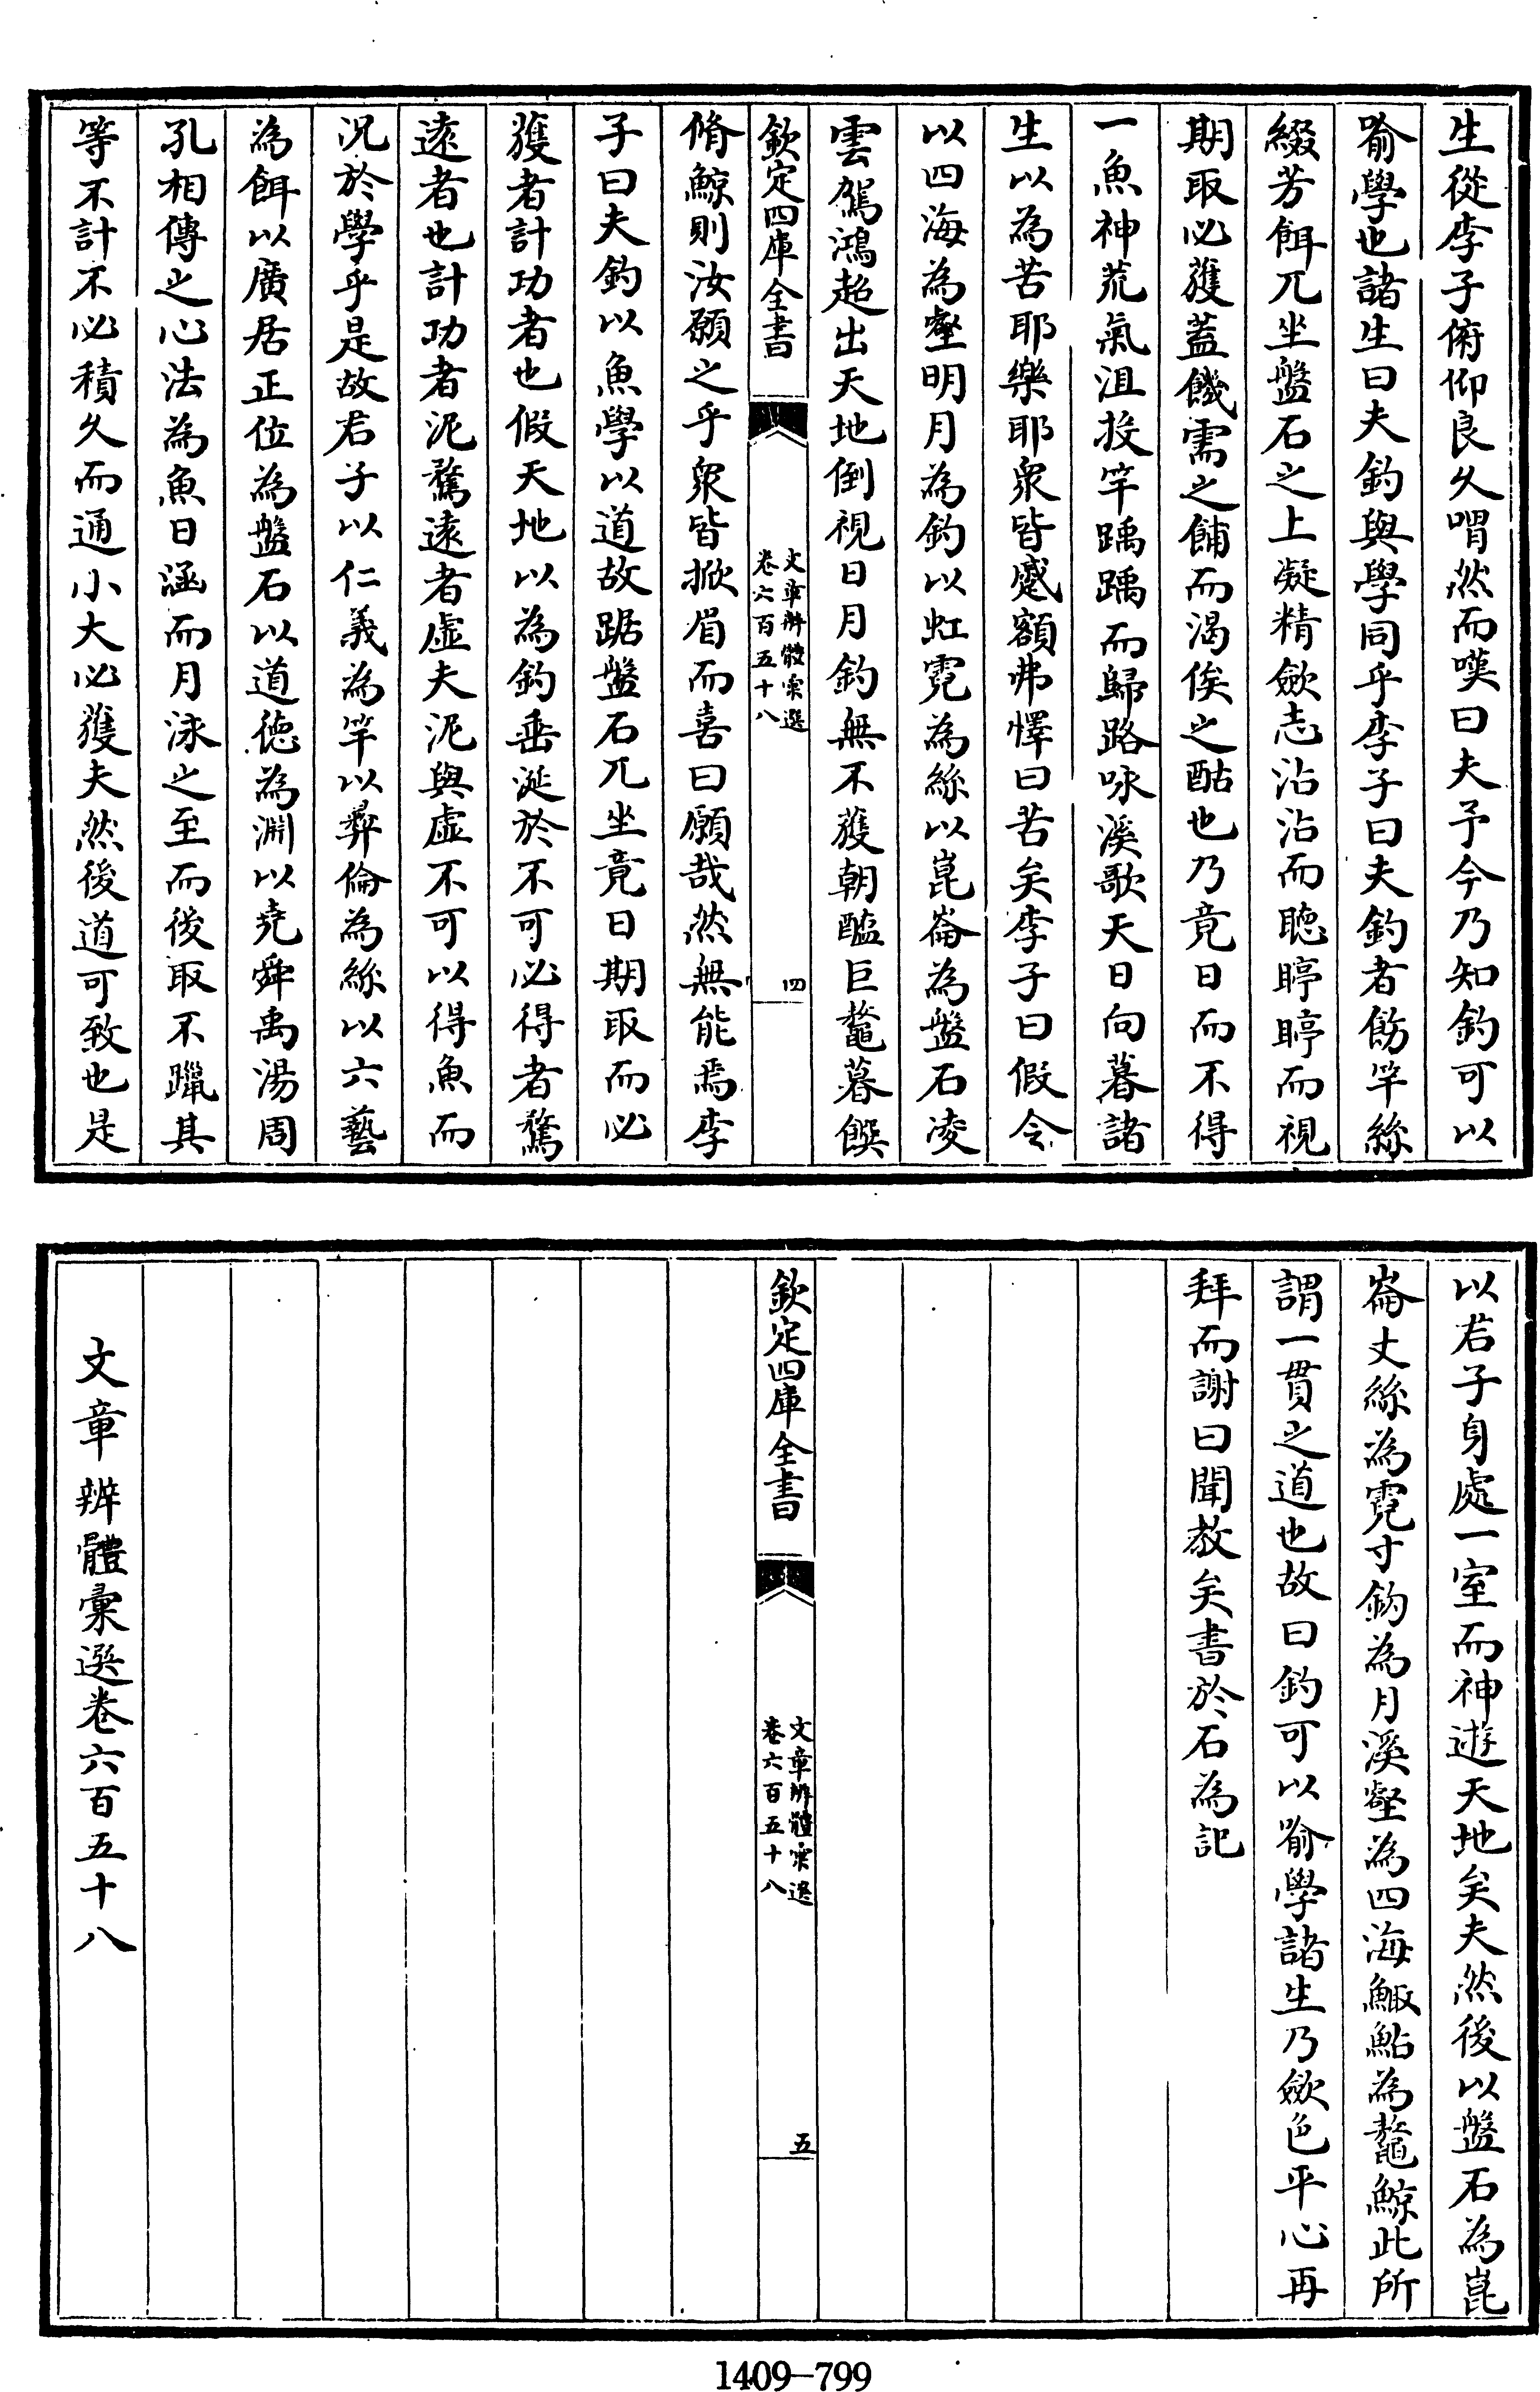 生從李子俯仰良久喟然而嘆曰夫予今乃知釣可以
喻學也諸生曰夫釣與學同乎李子曰夫釣者飭竿絲
綴芳餌兀坐盤石之上凝精斂志沾沾而聽睜睜而視
期取必獲蓋饑需之餔而渴俟之酤也乃竟日而不得
一魚神荒氣沮投竿踽踽而歸路咏溪歌天日向暮諸
生以為苦耶樂耶衆皆蹙額弗懌曰苦矣李子曰假令
以四海為壑明月為釣以虹霓為絲以崑崙為盤石凌
雲駕鴻超出天地倒視日月釣無不獲朝醢巨鼇暮饌
欽定四庫全書
文章辨體彙選
卷六百五十八
四
脩鯨則汝願之乎衆皆掀眉而喜曰願哉然無能焉李
子曰夫釣以魚學以道故踞盤石兀坐竟日期取而必
獲者計功者也假天地以為釣垂涎於不可必得者騖
遠者也計功者泥騖遠者虛夫泥與虛不可以得魚而
况於學乎是故君子以仁義為竿以彝倫為絲以六藝
為餌以廣居正位為盤石以道德為淵以堯舜禹湯周
孔相傳之心法為魚日涵而月泳之至而後取不躐其
等不計不必積久而通小大必獲夫然後道可致也是
以君子身處一室而神遊天地矣夫然後以盤石為崑
崙丈絲為霓寸鈎為月溪壑為四海鯫鮎為鼇鯨此所
謂一貫之道也故曰釣可以喻學諸生乃斂色平心再
拜而謝曰聞教矣書於石為記
欽定四庫全書
文章辨體彙選
卷六百五十八
五
文章辨體彙選卷六百五十八
1409-799